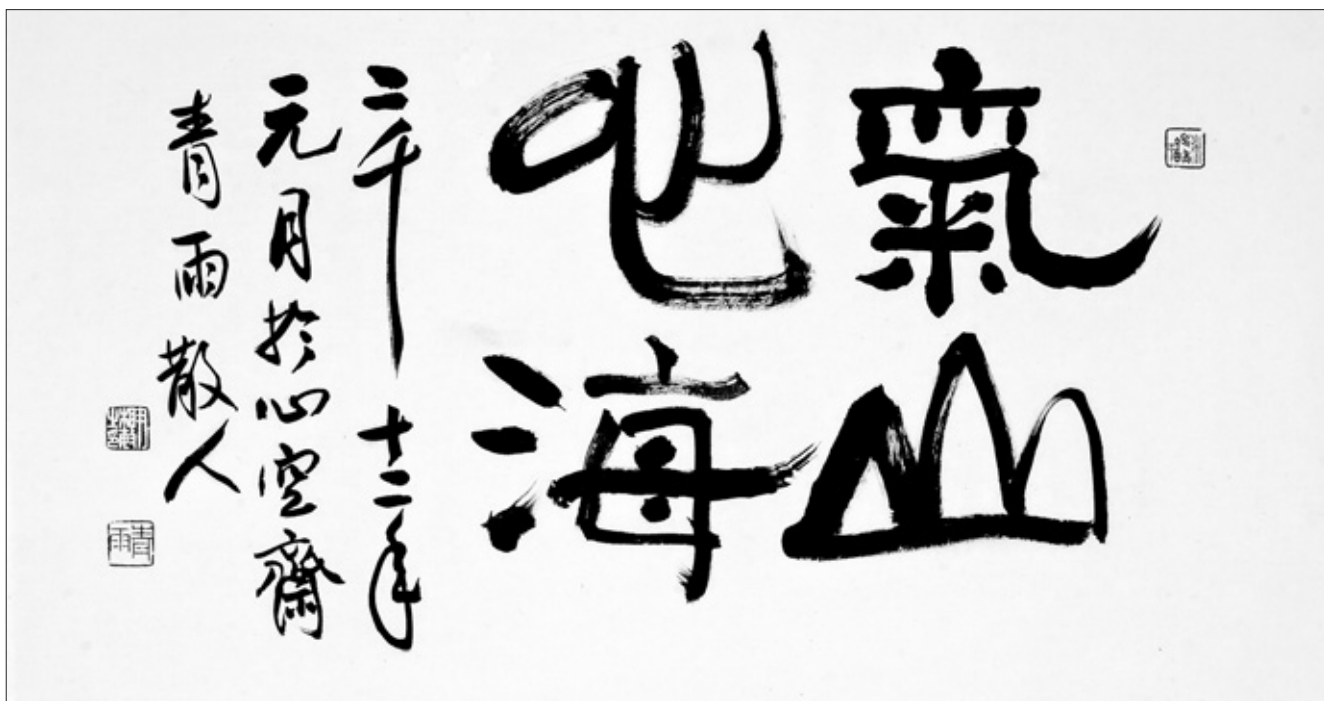 氣山
心海
二千十二年
元月於心空齋
青雨散人
青雨